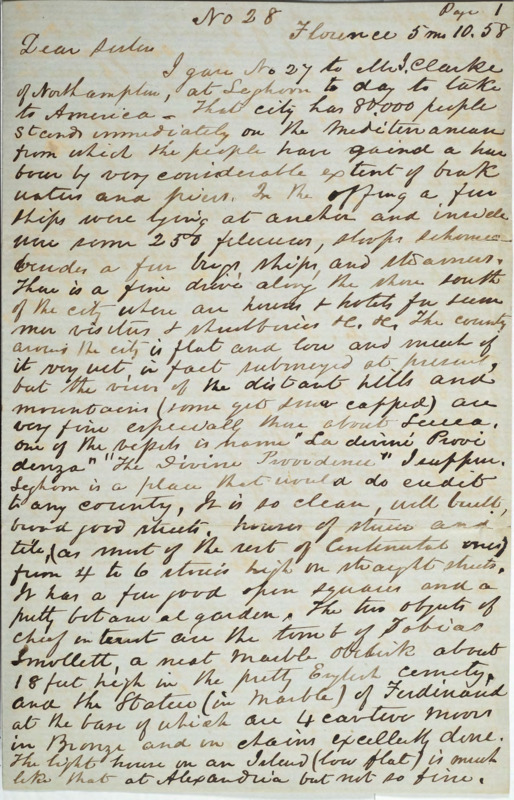 No 28 Page 1
Florence 5 mo 10. 58
Dear sister
I gave No 27 to Mr J. Clarke
of Northampton, at Leghorn to day to take
to America - That city has 80.000 people
stands immediately on the Mediterranean
from which the people have gaind a har
bour by very considerable extent of break
waters and piers. In the offing a few
ships were lying at anchor and inside
were some 250 feluccas, sloops schoone
besides a few brigs, ships, and steamers.
There is a fine drive along the shore south
of the city where are houses & hotels for sum
mer visitors & shrubberies &c. &c. The county
around the city is flat and low and much of
it very wet, in fact submerged at present,
but the views of the distant hills and
mountains (some yet snow capped) are
very fine especiall those about Lucca.
one of the vessels is name "La divini Provi
denza" "The Divine Providence" I suppose.
Leghorn is a place that would do credit
to any county, It is so clean, well built,
broad good streets, houses of stucco and
tile, (as most of the rest of Continental ones)
from 4 to 6 stories high on straight streets.
It has a few good open squares and a
pretty botanical garden. The two objects of
chief interest are the tomb of Tobias
Smollett, a neat Marble Obelisk about
18 feet high in the pretty English cemetry,
and the Statue (in Marble) of Ferdinand
at the base of which are 4 captive moors
in Bronze and in chains excellently done.
The light house on an Island (low flat) is much
like that at Alexandria but not so fine.